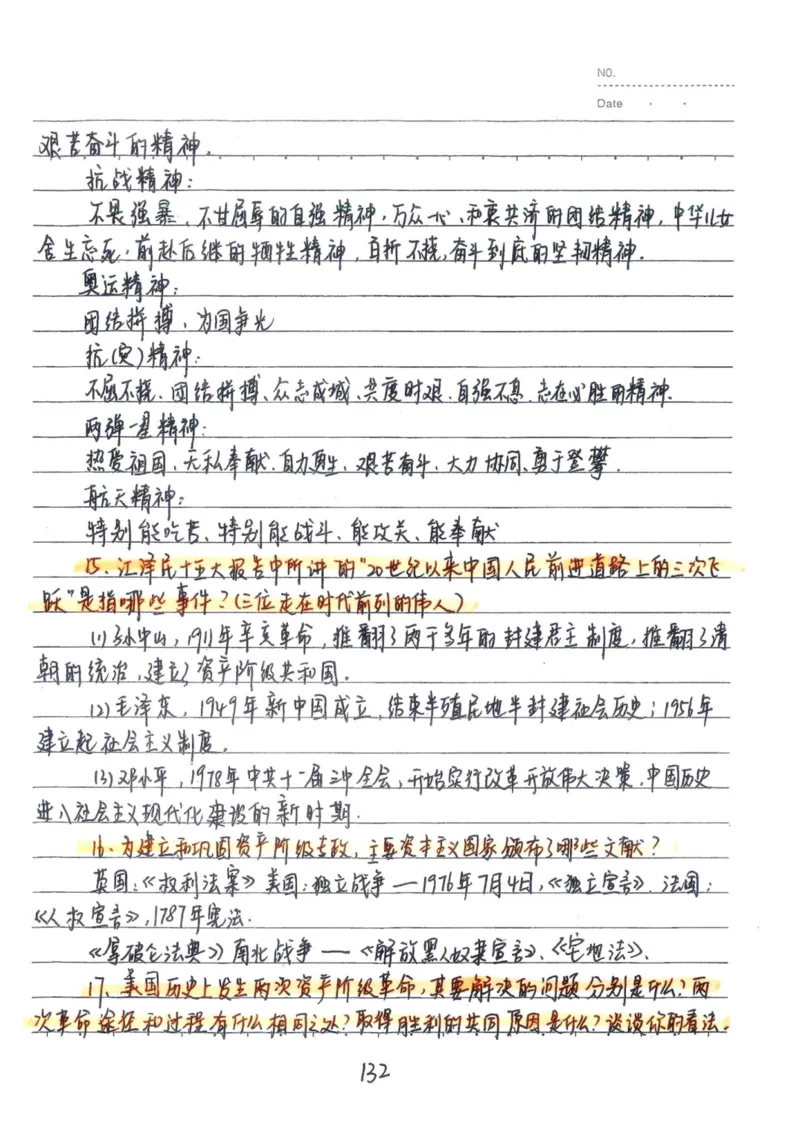 NO.
Date
艰苦奋斗的精神.
抗战精神:
不畏强暴、不甘屈辱的自强精神,万众一心、和衷共济的团结精神,中华儿女
舍生忘死、前赴后继的牺牲精神,百折不挠,奋斗到底的坚韧精神.
奥运精神:
团结拼搏、为国争光
抗(灾)精神:
不屈不挠、团结拼搏、众志成城、共度时艰、自强不息、志在必胜的精神.
两弹一星精神:
热爱祖国、无私奉献、自力更生、艰苦奋斗、大力协同、勇于登攀.
航天精神:
特别能吃苦、特别能战斗、能攻关、能奉献
15、江泽民十五大报告中所讲的"20世纪以来中国人民前进道路上的三次飞
跃"是指哪些事件?(三位走在时代前列的伟人)
(1)孙中山,1911年辛亥革命,推翻了两千多年的封建君主制度,推翻了清
朝的统治,建立了资产阶级共和国.
(2)毛泽东,1949年新中国成立,结束半殖民地半封建社会历史;1956年
建立起社会主义制度.
(3)邓小平,1978年中共十一届三中全会,开始实行改革开放伟大决策.中国历史
进入社会主义现代化建设的新时期.
16、为建立和巩固资产阶级专政,主要资本主义国家颁布了哪些文献?
英国:《权利法案》美国:独立战争—1976年7月4日,《独立宣言》.法国:
《人权宣言》,1787年宪法.
《拿破仑法典》南北战争—《解放黑人奴隶宣言》、《宅地法》、
17、美国历史上发生两次资产阶级革命,其要解决的问题分别是什么?两
次革命途径和过程有什么相同之处?取得胜利的共同原因是什么?谈谈你的看法.
132